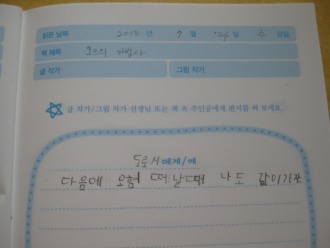 읽은 날짜 2015 년 7 월 일 수 요일
책 제목 오즈의 마법사
글 작가 그림 작가
글 작가/그림 작가 선생님 또는 책 속 주인공에게 편지를 써 보세요.
도로시에게/께
다음에 모험 떠날때 나도 같이가자